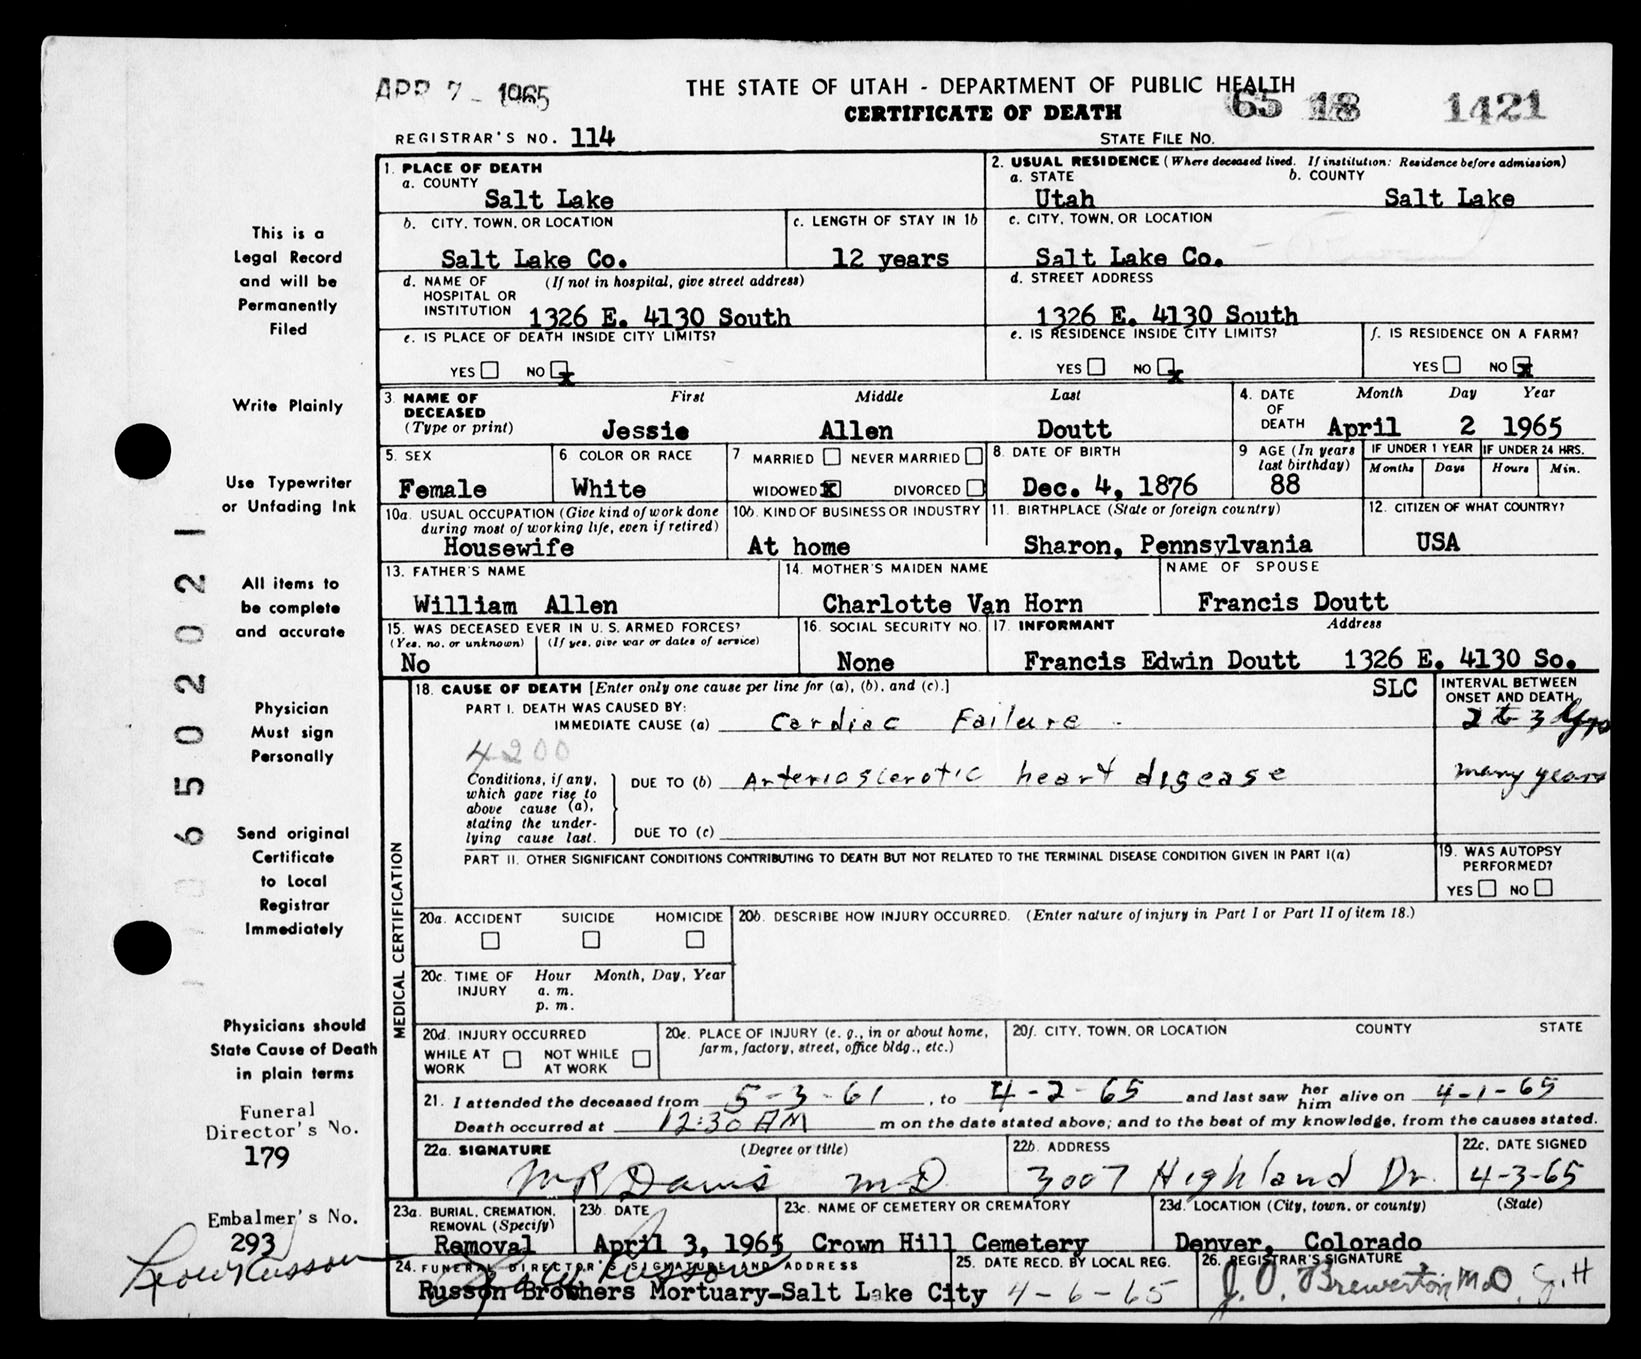 APR 7 - 1965
THE STATE OF UTAH - DEPARTMENT OF PUBLIC HEALTH
CERTIFICATE OF DEATH
65 18 1421
REGISTRAR'S NO. 114
STATE FILE NO.
1. PLACE OF DEATH
a. COUNTY
Salt Lake
2. USUAL RESIDENCE (Where deceased lived. If institution: Residence before admission)
a. STATE
Utah
b. COUNTY
Salt Lake
b. CITY, TOWN, OR LOCATION
Salt Lake Co.
c. LENGTH OF STAY IN 1b
12 years
c. CITY, TOWN, OR LOCATION
Salt Lake Co.
d. NAME OF HOSPITAL OR INSTITUTION (If not in hospital, give street address)
1326 E. 4130 South
d. STREET ADDRESS
1326 E. 4130 South
e. IS PLACE OF DEATH INSIDE CITY LIMITS?
YES NO x
e. IS RESIDENCE INSIDE CITY LIMITS?
YES NO x
f. IS RESIDENCE ON A FARM?
YES NO x
3. NAME OF DECEASED (Type or print)
First Middle Last
Jessie Allen Doutt
4. DATE OF DEATH
Month Day Year
April 2 1965
5. SEX
Female
6. COLOR OR RACE
White
7 MARRIED NEVER MARRIED
WIDOWED x DIVORCED
8. DATE OF BIRTH
Dec. 4, 1876
9 AGE (In years last birthday)
88
IF UNDER 1 YEAR
Months Days
IF UNDER 24 HRS.
Hours Min.
10a. USUAL OCCUPATION (Give kind of work done during most of working life, even if retired)
Housewife
10b. KIND OF BUSINESS OR INDUSTRY
At home
11. BIRTHPLACE (State or foreign country)
Sharon, Pennsylvania
12. CITIZEN OF WHAT COUNTRY?
USA
13. FATHER'S NAME
William Allen
14. MOTHER'S MAIDEN NAME
Charlotte Van Horn
NAME OF SPOUSE
Francis Doutt
15. WAS DECEASED EVER IN U. S. ARMED FORCES?
(Yes, no, or unknown) (If yes, give war or dates of service)
No
16. SOCIAL SECURITY NO.
None
17. INFORMANT Address
Francis Edwin Doutt 1326 E. 4130 So.
SLC
MEDICAL CERTIFICATION
18. CAUSE OF DEATH [Enter only one cause per line for (a), (b), and (c).]
PART I. DEATH WAS CAUSED BY:
IMMEDIATE CAUSE (a) Cardiac Failure
INTERVAL BETWEEN ONSET AND DEATH
2 to 3 dys
4200
Conditions, if any, which gave rise to above cause (a), stating the underlying cause last.
DUE TO (b) Arteriosclerotic heart disease
many years
DUE TO (c)
PART II. OTHER SIGNIFICANT CONDITIONS CONTRIBUTING TO DEATH BUT NOT RELATED TO THE TERMINAL DISEASE CONDITION GIVEN IN PART I(a)
19. WAS AUTOPSY PERFORMED?
YES NO
20a. ACCIDENT SUICIDE HOMICIDE
20b. DESCRIBE HOW INJURY OCCURRED. (Enter nature of injury in Part I or Part II of item 18.)
20c. TIME OF INJURY
Hour Month, Day, Year
a. m.
p. m.
20d. INJURY OCCURRED
WHILE AT WORK NOT WHILE AT WORK
20e. PLACE OF INJURY (e. g., in or about home, farm, factory, street, office bldg., etc.)
20f. CITY, TOWN, OR LOCATION COUNTY STATE
21. I attended the deceased from 5-3-61, to 4-2-65 and last saw her him alive on 4-1-65
Death occurred at 12:30 AM m on the date stated above; and to the best of my knowledge, from the causes stated.
22a. SIGNATURE (Degree or title)
M R Davis MD
22b. ADDRESS
3007 Highland Dr.
22c. DATE SIGNED
4-3-65
23a. BURIAL, CREMATION, REMOVAL (Specify)
Removal
23b. DATE
April 3, 1965
23c. NAME OF CEMETERY OR CREMATORY
Crown Hill Cemetery
23d. LOCATION (City, town, or county) (State)
Denver, Colorado
24. FUNERAL DIRECTOR'S SIGNATURE AND ADDRESS
Russon Brothers Mortuary-Salt Lake City
25. DATE RECD. BY LOCAL REG.
4-6-65
26. REGISTRAR'S SIGNATURE
J. O. Brewerton M.D. J.H
This is a
Legal Record
and will be
Permanently
Filed
Write Plainly
Use Typewriter
or Unfading Ink
All items to
be complete
and accurate
Physician
Must sign
Personally
Send original
Certificate
to Local
Registrar
Immediately
Physicians should
State Cause of Death
in plain terms
Funeral
Director's No.
179
Embalmer's No.
293
6502021